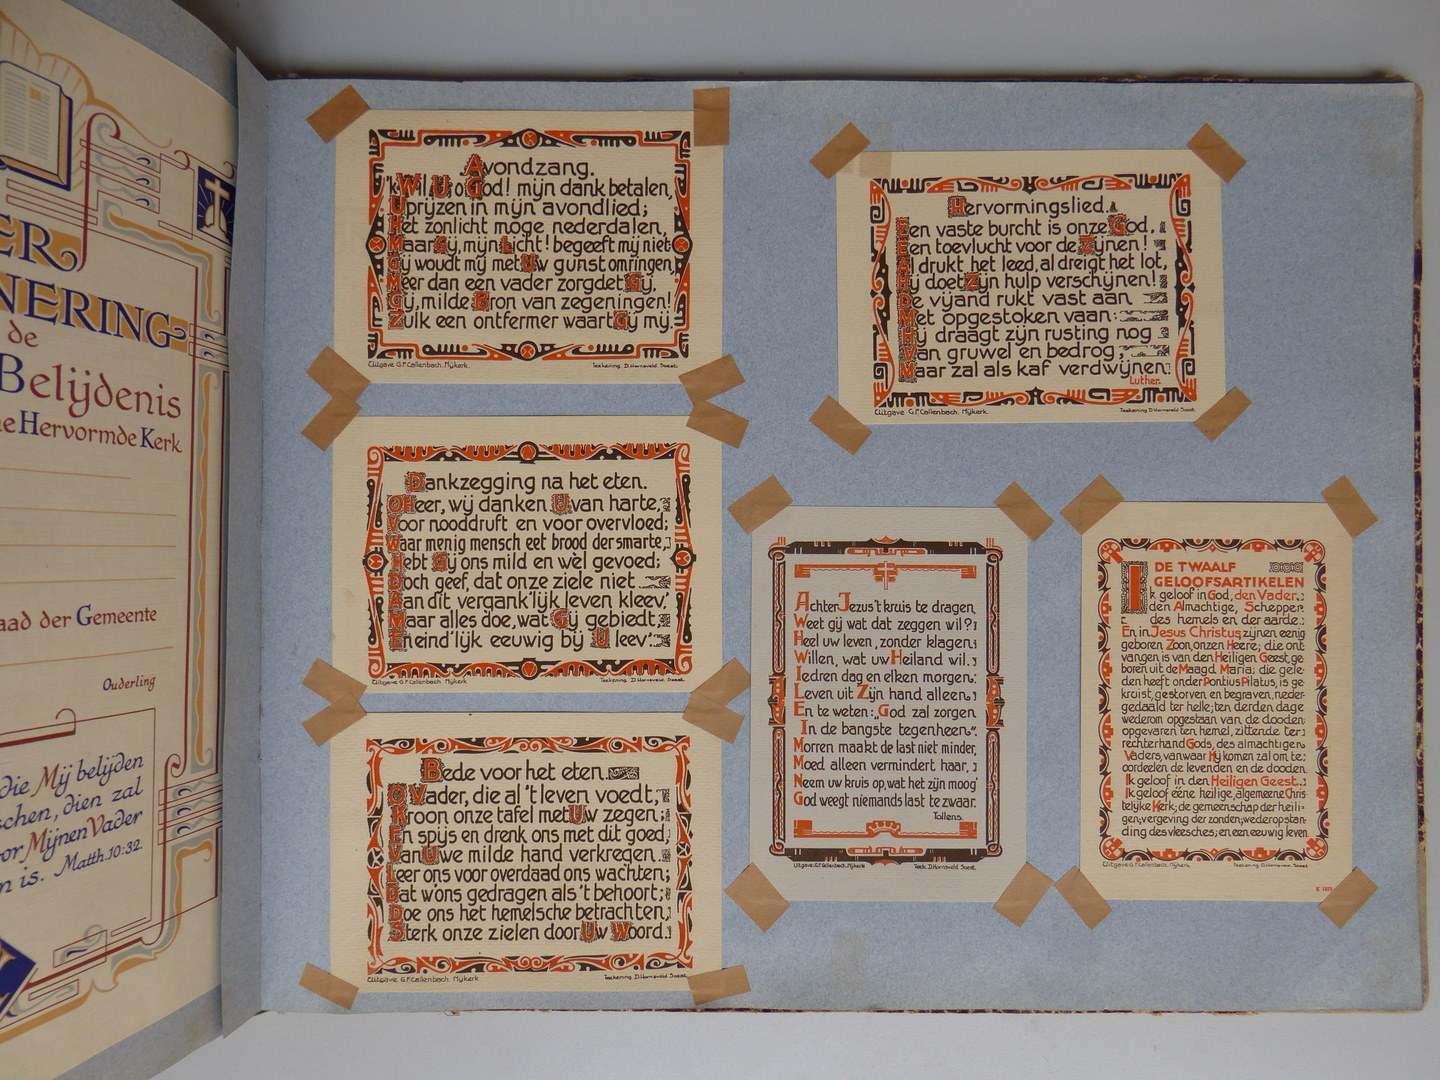 ER
NERING
de
Belijdenis
e Hervormde Kerk
aad der Gemeente
Ouderling
die Mij belijden
schen, dien zal
or Mijnen Vader
n is. Matth. 10:32.
Avondzang.
'k Wil U o God! mijn dank betalen,
U prijzen in mijn avondlied;
Het zonlicht moge nederdalen,
Maar Gij, mijn Licht! begeeft mij niet.
Gij woudt mij met Uw gunst omringen,
Meer dan een vader zorgdet Gij,
Gij, milde Bron van zegeningen!
Zulk een ontfermer waart Gij mij.
Uitgave G.F. Callenbach. Nijkerk. Teekening D. Hornsveld. Soest.
Dankzegging na het eten.
O Heer, wij danken U van harte,
Voor nooddruft en voor overvloed;
Waar menig mensch eet brood der smarte,
Hebt Gij ons mild en wèl gevoed;
Doch geef, dat onze ziele niet
Aan dit vergank'lijk leven kleev.'
Maar alles doe, wat Gij gebiedt,
En eind'lijk eeuwig bij U leev'.
Uitgave G.F. Callenbach. Nijkerk Teekening. D. Hornsveld. Soest.
Bede voor het eten.
O Vader, die al 't leven voedt,
Kroon onze tafel met Uw zegen;
En spijs en drenk ons met dit goed,
Van Uwe milde hand verkregen.
Leer ons voor overdaad ons wachten;
Dat w'ons gedragen als 't behoort;
Doe ons het hemelsche betrachten,
Sterk onze zielen door Uw Woord.
Uitgave G.F. Callenbach. Nijkerk Teekening. D. Hornsveld Soest.
Hervormingslied.
Een vaste burcht is onze God,
Een toevlucht voor de Zijnen!
Al drukt het leed, al dreigt het lot,
Hij doet Zijn hulp verschijnen!
De vijand rukt vast aan
Met opgestoken vaan:
Hij draagt zijn rusting nog
Van gruwel en bedrog,
Maar zal als kaf verdwijnen.
Luther.
Uitgave G.F. Callenbach. Nijkerk. Teekening D. Hornsveld Soest.
Achter Jezus 't kruis te dragen,
Weet gij wat dat zeggen wil?
Heel uw leven, zonder klagen,
Willen, wat uw Heiland wil.
Iedren dag en elken morgen
Leven uit Zijn hand alleen,
En te weten: „God zal zorgen
In de bangste tegenheen".
Morren maakt de last niet minder,
Moed alleen vermindert haar,
Neem uw kruis op, wat het zijn moog'
God weegt niemands last te zwaar.
Tollens.
Uitgave G.F. Callenbach. Nijkerk Teek. D. Hornsveld Soest.
DE TWAALF
GELOOFSARTIKELEN
Ik geloof in God, den Vader,
den Almachtige, Schepper
des hemels en der aarde.
En in Jesus Christus zijnen eenig
geboren Zoon, onzen Heere; die ont-
vangen is van den Heiligen Geest, ge-
boren uit de Maagd Maria; die gele-
den heeft onder Pontius Pilatus, is ge-
kruist, gestorven en begraven, neder-
gedaald ter helle; ten derden dage
wederom opgestaan van de dooden;
opgevaren ten hemel, zittende ter
rechterhand Gods, des almachtigen
Vaders, van waar Hij komen zal om te
oordeelen de levenden en de dooden.
Ik geloof in den Heiligen Geest.
Ik geloof eene heilige, algemeene Chris-
telijke Kerk; de gemeenschap der heili-
gen; vergeving der zonden; wederopstan-
ding des vleesches; en een eeuwig leven.
Uitgave G.F. Callenbach. Nijkerk. Teekening D. Hornsveld. Soest